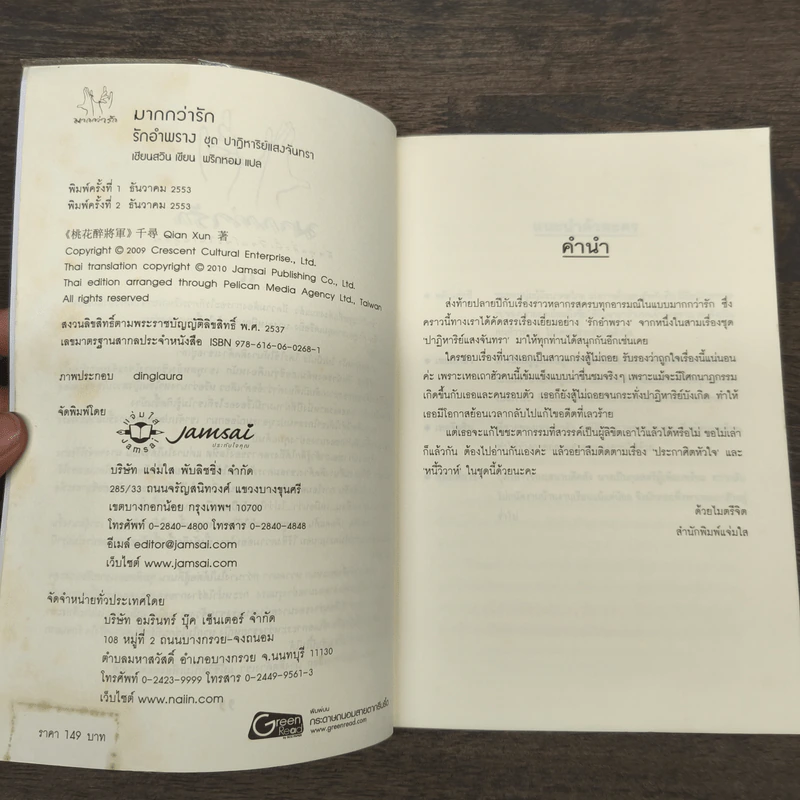 มากกว่ารัก
มากกว่ารัก
รักอำพราง ชุด ปาฏิหาริย์แสงจันทรา
เชียนสวิน เขียน พริกหอม แปล
พิมพ์ครั้งที่ 1 ธันวาคม 2553
พิมพ์ครั้งที่ 2 ธันวาคม 2553
《桃花醉將軍》千尋 Qian Xun 著
Copyright © 2009 Crescent Cultural Enterprise., Ltd.
Thai translation copyright © 2010 Jamsai Publishing Co., Ltd.
Thai edition arranged through Pelican Media Agency Ltd., Taiwan
All rights reserved
สงวนลิขสิทธิ์ตามพระราชบัญญัติลิขสิทธิ์ พ.ศ. 2537
เลขมาตรฐานสากลประจำหนังสือ ISBN 978-616-06-0268-1
ภาพประกอบ dinglaura
จัดพิมพ์โดย
แจ่มใส
Jamsai
Jamsai
ประทับใจคุณ
บริษัท แจ่มใส พับลิชชิ่ง จำกัด
285/33 ถนนจรัญสนิทวงศ์ แขวงบางขุนศรี
เขตบางกอกน้อย กรุงเทพฯ 10700
โทรศัพท์ 0-2840-4800 โทรสาร 0-2840-4848
อีเมล์ editor@jamsai.com
เว็บไซต์ www.jamsai.com
จัดจำหน่ายทั่วประเทศโดย
บริษัท อมรินทร์ บุ๊ค เซ็นเตอร์ จำกัด
108 หมู่ที่ 2 ถนนบางกรวย-จงถนอม
ตำบลมหาสวัสดิ์ อำเภอบางกรวย จ.นนทบุรี 11130
โทรศัพท์ 0-2423-9999 โทรสาร 0-2449-9561-3
เว็บไซต์ www.naiin.com
ราคา 149 บาท
Green Read
พิมพ์บน
กระดาษถนอมสายตากรีนรี้ด
www.greenread.com
คำนำ
ส่งท้ายปลายปีกับเรื่องราวหลากรสครบทุกอารมณ์ในแบบมากกว่ารัก ซึ่ง
คราวนี้ทางเราได้คัดสรรเรื่องเยี่ยมอย่าง 'รักอำพราง' จากหนึ่งในสามเรื่องชุด
'ปาฏิหาริย์แสงจันทรา' มาให้ทุกท่านได้สนุกกันอีกเช่นเคย
ใครชอบเรื่องที่นางเอกเป็นสาวแกร่งสู้ไม่ถอย รับรองว่าถูกใจเรื่องนี้แน่นอน
ค่ะ เพราะเหอเถาฮัวคนนี้เข้มแข็งแบบน่าชื่นชมจริงๆ เพราะแม้จะมีโศกนาฏกรรม
เกิดขึ้นกับเธอและคนรอบตัว เธอก็ยังสู้ไม่ถอยจนกระทั่งปาฏิหาริย์บังเกิด ทำให้
เธอมีโอกาสย้อนเวลากลับไปแก้ไขอดีตที่เลวร้าย
แต่เธอจะแก้ไขชะตากรรมที่สวรรค์เป็นผู้ลิขิตเอาไว้แล้วได้หรือไม่ ขอไม่เล่า
ก็แล้วกัน ต้องไปอ่านกันเองค่ะ แล้วอย่าลืมติดตามเรื่อง 'ประกาศิตหัวใจ' และ
'หนี้วิวาห์' ในชุดนี้ด้วยนะคะ
ด้วยไมตรีจิต
สำนักพิมพ์แจ่มใส